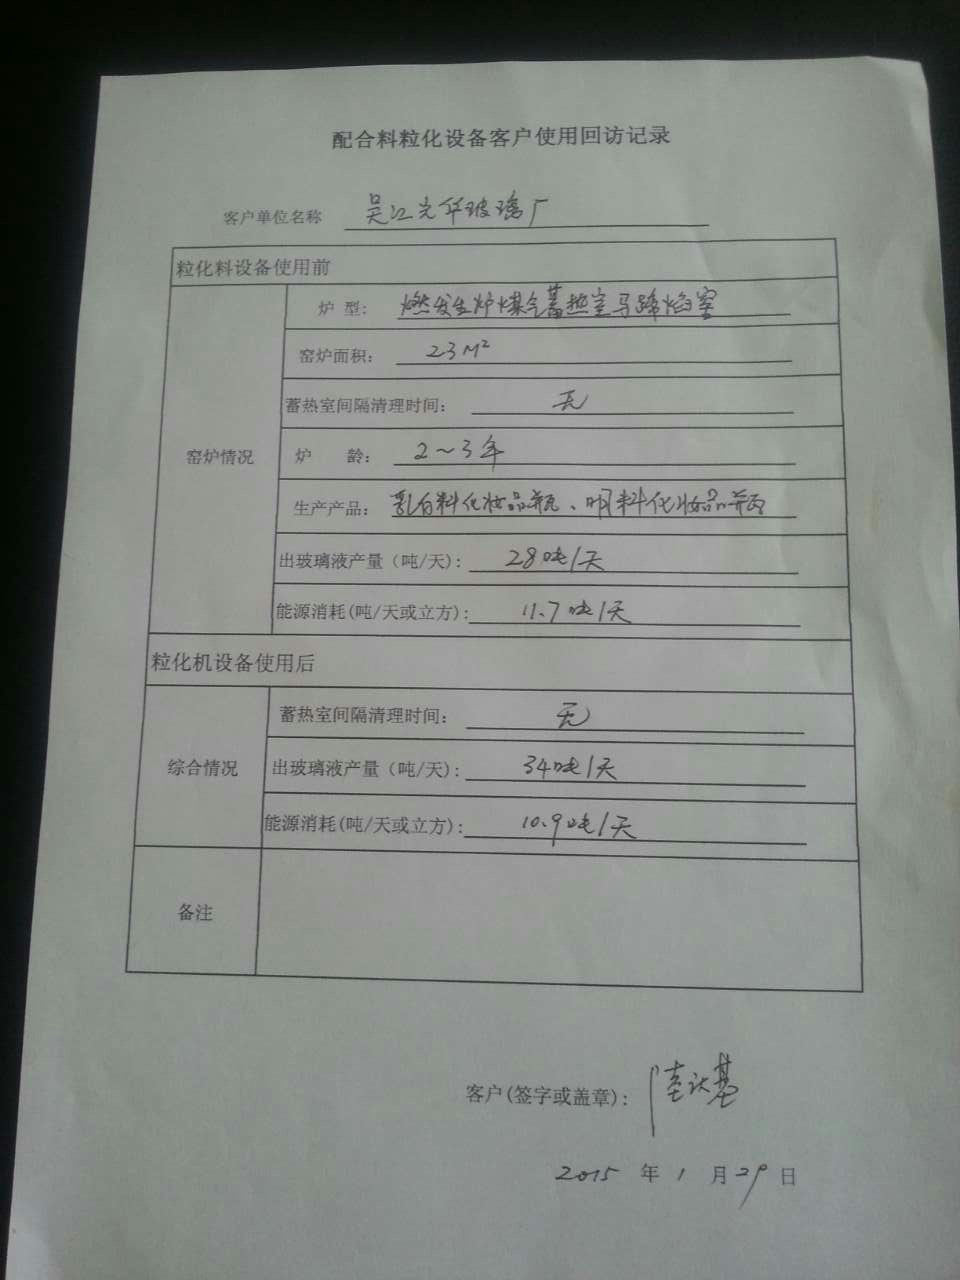 配合料粒化设备客户使用回访记录
客户单位名称 吴江光华玻璃厂
粒化料设备使用前
炉 型: 燃发生炉煤气蓄热室马蹄焰窑
窑炉面积: 23M²
蓄热室间隔清理时间: 无
窑炉情况
炉 龄: 2～3年
生产产品: 乳白料化妆品瓶、明料化妆品瓶
出玻璃液产量（吨/天): 28吨/天
能源消耗(吨/天或立方): 11.7吨/天
粒化机设备使用后
蓄热室间隔清理时间: 无
综合情况
出玻璃液产量（吨/天): 34吨/天
能源消耗(吨/天或立方): 10.9吨/天
备注
客户(签字或盖章):
2015 年 1 月 29 日